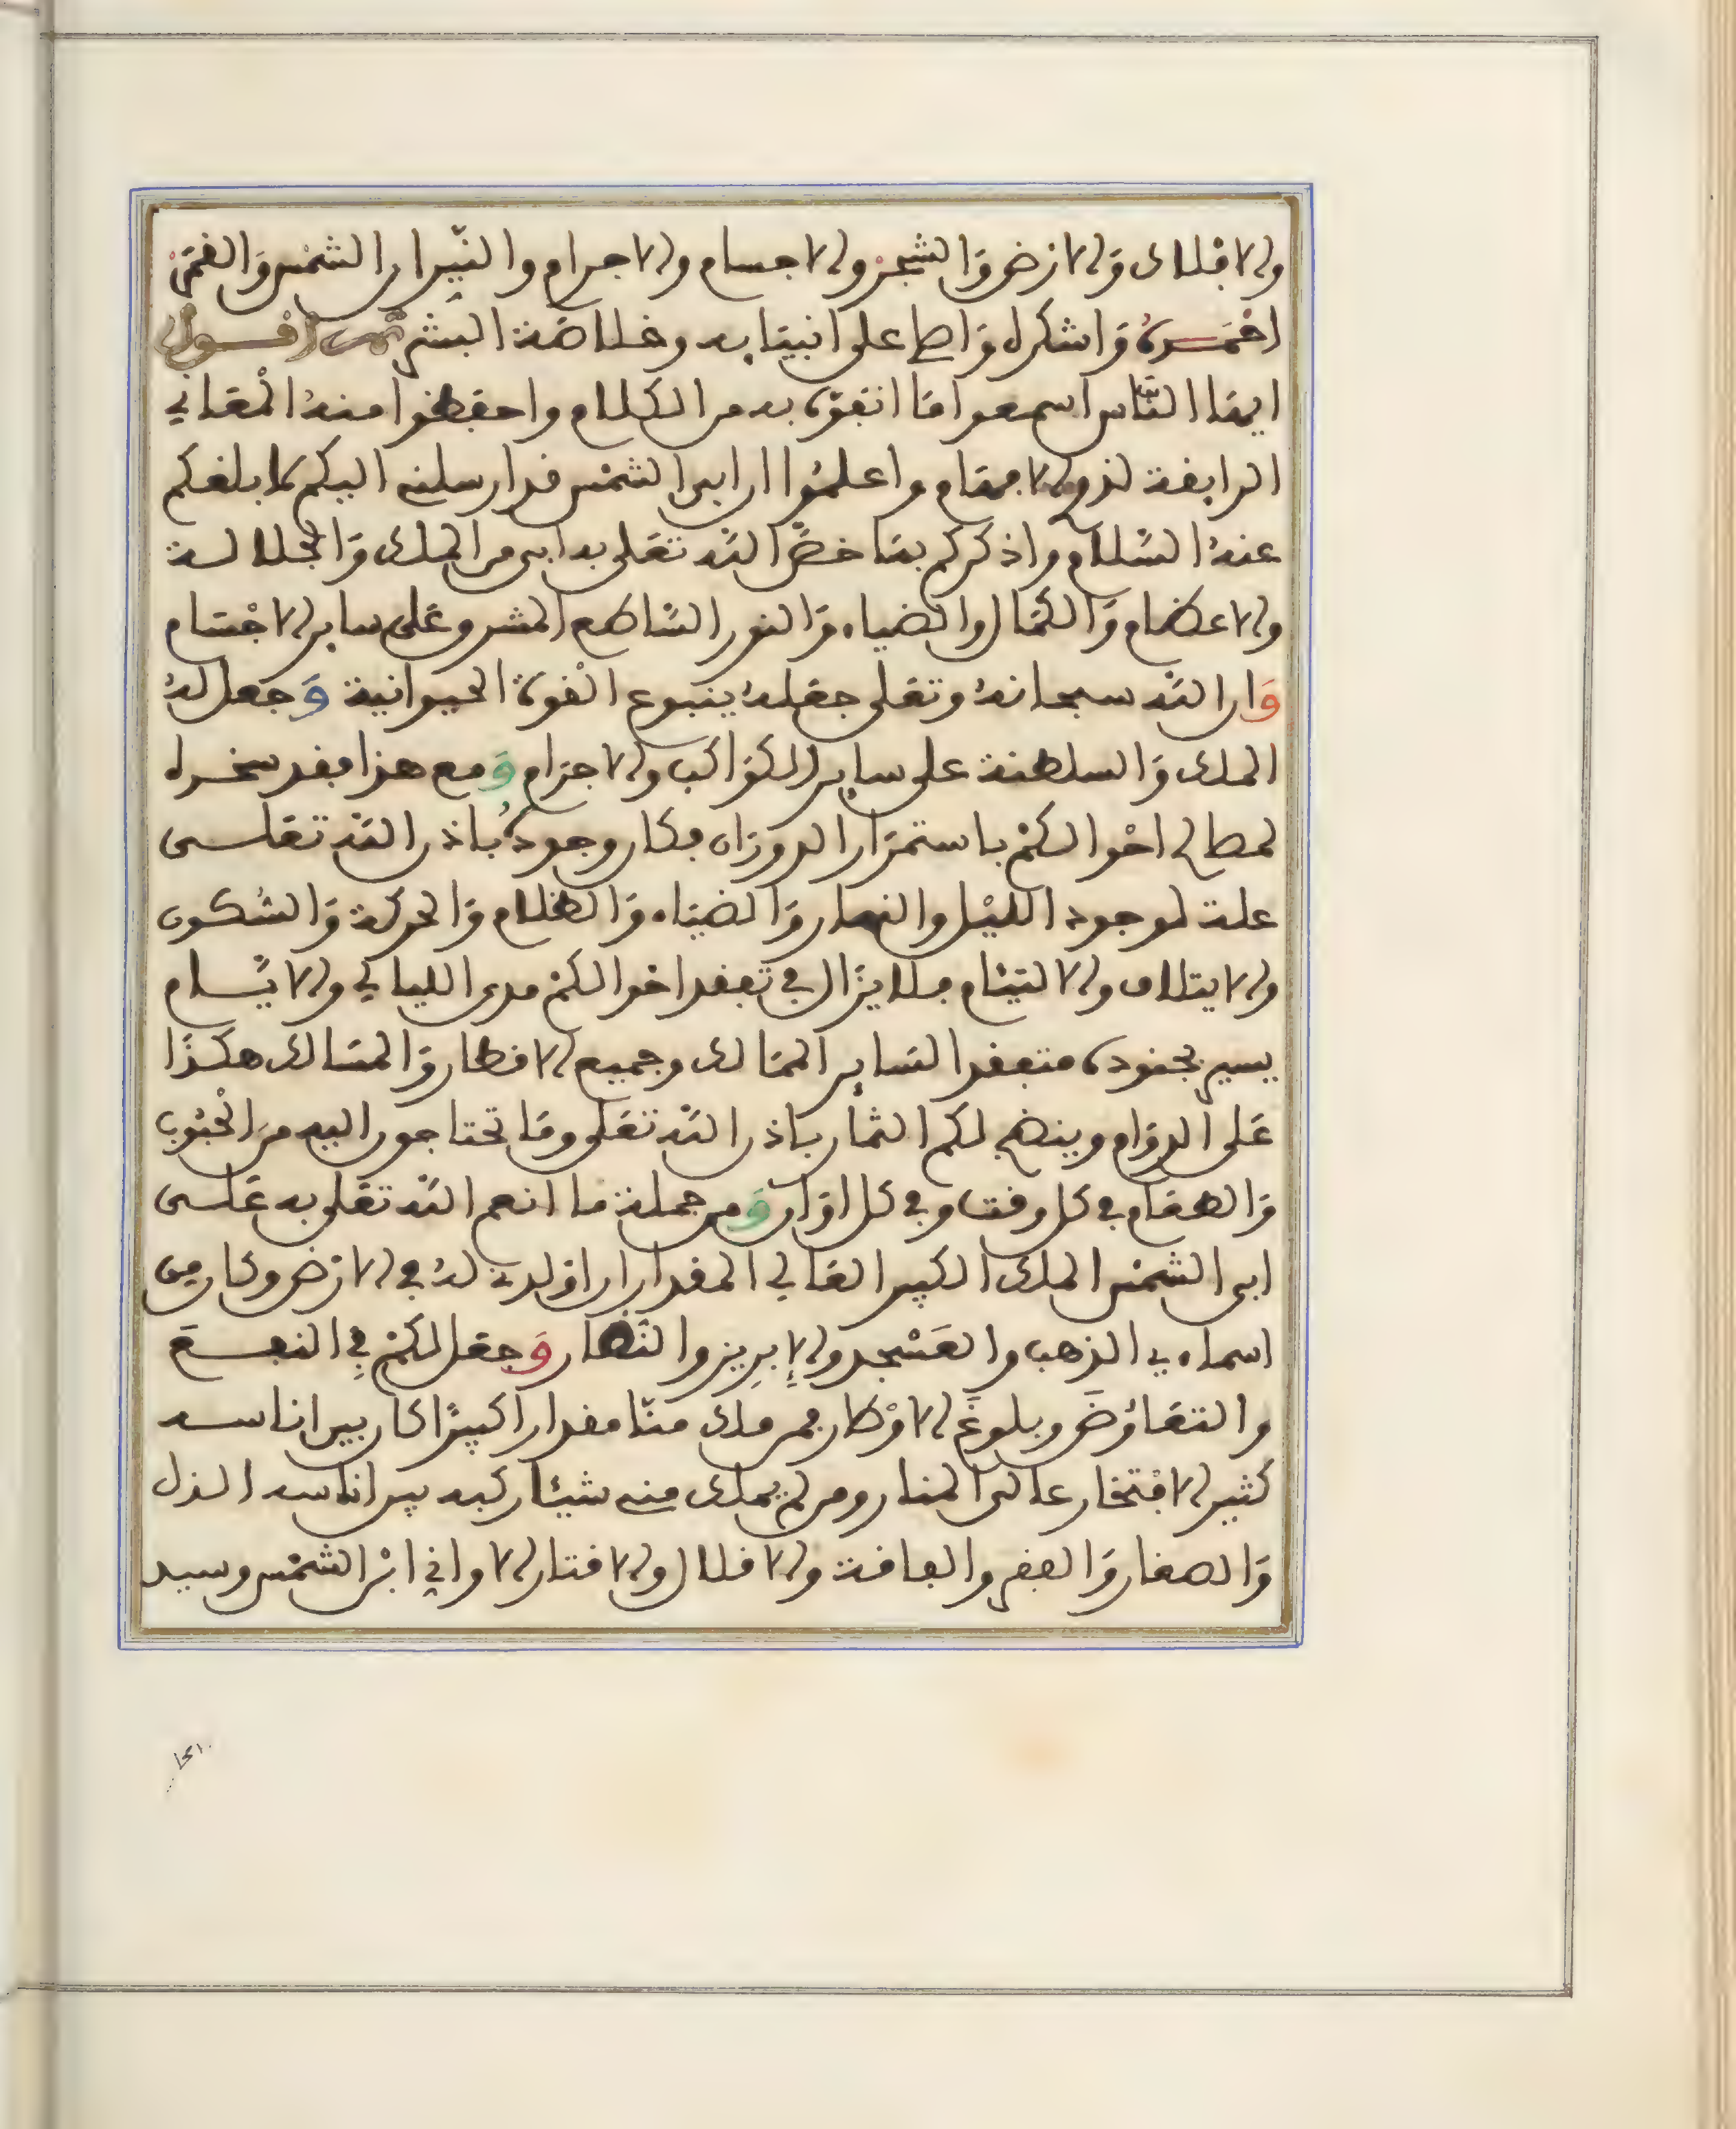 والافلاك والارض والشجر والاجسام والاجرام والنيران الشمس والقمر
احمده واشكره واصلي على انبيايه وخلاصة البشر ثم اقول
ايها الناس اسمعوا ما اتفوه به من الكلام واحفظوا منه المعاني
الرايقة لذوي الافهام واعلموا ان ابي الشمس قد ارسلني اليكم لابلغكم
عنه السلام واذكركم بما خص الله تعلى به ابي من الملك والجلالة
والاعظام والكمال والضياء والنور الساطع المشرق على ساير الاجسام
وان الله سبحانه وتعلى جعله ينبوع القوة الحيوانية وجعل له
الملك والسلطنة على ساير الكواكب والاجرام ومع هذا فقد سخره
لمصالح احوالكم باستمرار الدوران فكان وجوده باذن الله تعلى
علة لوجود الليل والنهار والضياء والظلام والحركة والسكون
والايتلاف والالتيام فلا يزال في تفقد احوالكم مدى الليالي والايام
يسير بجنوده متفقدا لساير الممالك وجميع الاقطار والمسالك هكذا
على الدوام وينضج لكم الثمار باذن الله تعلى وما تحتاجون اليه من الحبوب
والطعام في كل وقت وفي كل اوان ومن جملة ما انعم الله تعلى به على
ابي الشمس الملك الكبير العالي المقدار ان اولده له في الارض وكان من
اسمايه الذهب والعسجد والابريز والنضار وجعل لكم في النفع
والتعاوض وبلوغ الاوطار فمن ملك منا مقدارا كبيرا كان بين اناسه
كثير الافتخار عالي المنار ومن لم يملك منه شيئا ركبه بين اناسه الذل
والصغار والفقر والفاقة والاقلال والاقتار الا واني ابن الشمس وسيد